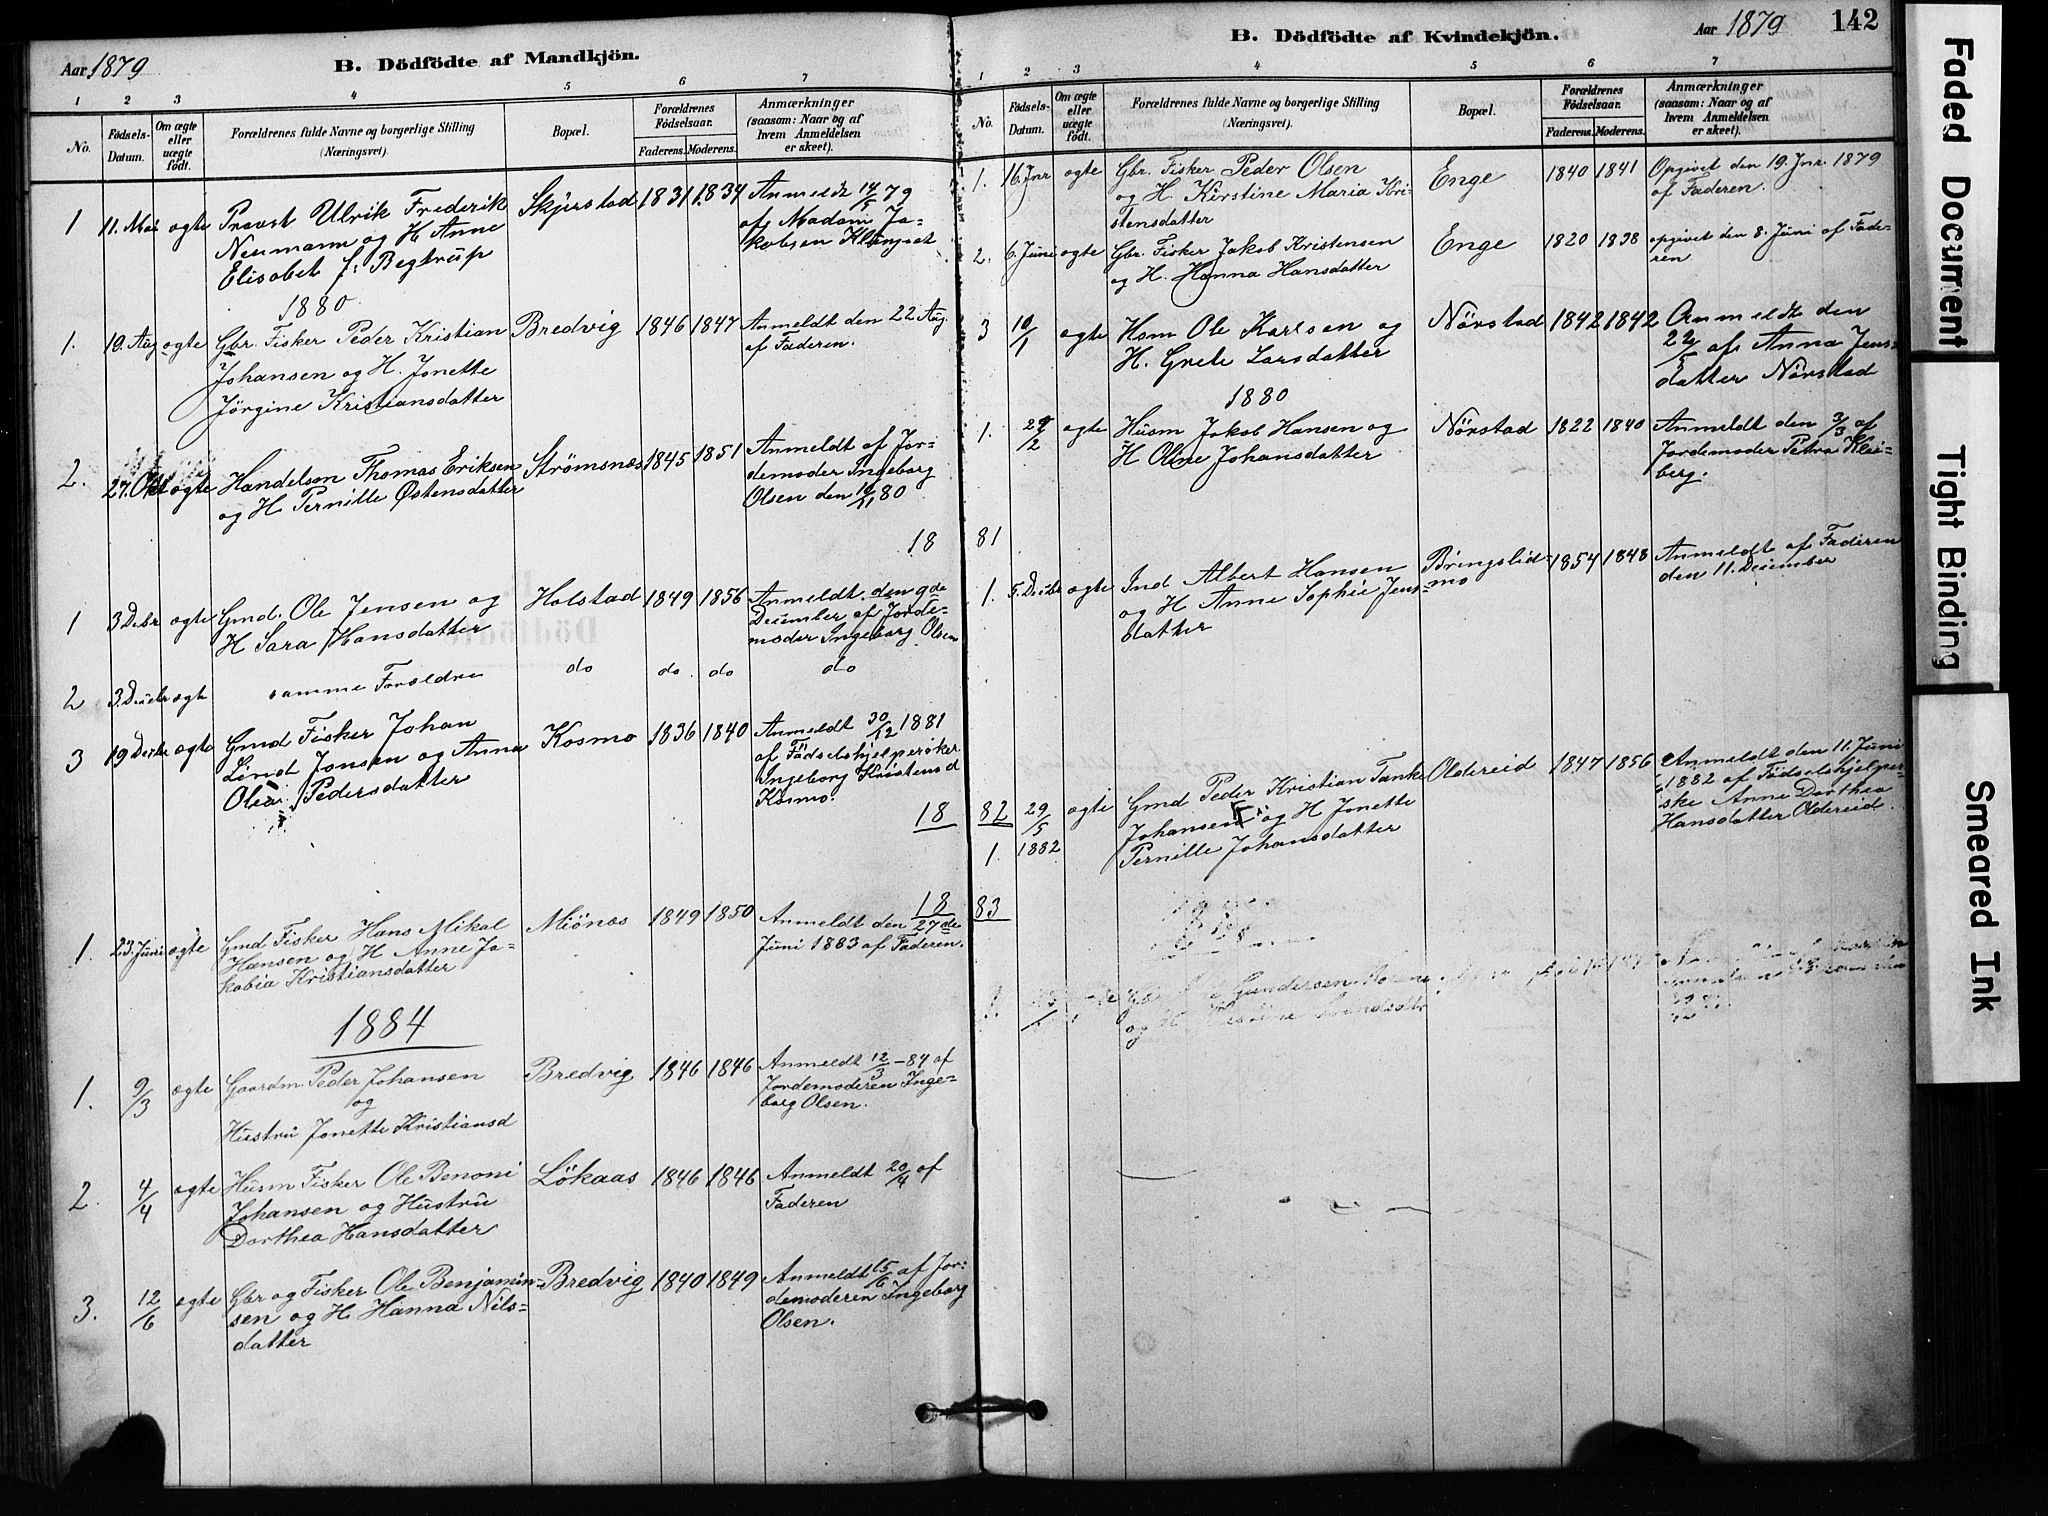 Aar 1879
B. Dödfödte af Mandkjön.
1 2 3 4 5 6 7
No.
Födsels-
Datum.
Om ægte
eller
uægte
födt.
Forældrenes fulde Navne og borgerlige Stilling
(Næringsvei).
Bopæl.
Forældrenes
Födselsaar.
Faderens. Moderens.
Anmærkninger
(saasom: Naar og af
hvem Anmeldelsen
er skeet).
1 11. Mai ægte Provst Ulrik Frederik Skjerstad 1831 1834 Anmeldt 14/5 79
Neumann og H. Anne af Madam Ja-
Elisabet f: Begtrup kobsen Klungset
1880
1. 19. Aug ægte Gbr. Fisker Peder Kristian Bredvig 1846 1847 Anmeldt den 22 Aug.
Johansen og H. Jonette af Faderen.
Jörgine Kristiansdatter
2. 27. Okt ægte Handelsm Thomas Eriksen Strömsnæs 1845 1851 Anmeldt af Jor-
og H Pernille Østensdatter demoder Ingeborg
Olsen den 10/11 80
18
1 3 Decbr ægte Gmd. Ole Jensen og Holstad 1849 1856 Anmeldt den 9de
H Sara Hansdatter December af Jorde-
moder Ingeborg Olsen
2 3. Decbr ægte samme Forældre do do. do do
3 19 Decbr ægte Gmd Fisker Johan Kosmo 1836 1840 Anmeldt 30/12 1881
Lind Jonsen og Anna af Födselshjelperske
Olea Pedersdatter Ingeborg Kristensd
Kosmo.
18
18
1. 23. Juni ægte Gmd Fisker Hans Mikal Miönæs 1849 1850 Anmeldt den 27de
Hansen og H Anne Ja- Juni 1883 af Faderen.
kobia Kristiansdatter
1884
1. 9/3 ægte Gaardm Peder Johansen Bredvig 1846 1846 Anmeldt 12/3 - 84 af
og Jordemoderen Inge-
Hustru Jonette Kristiansd borg Olsen.
2. 4/4 ægte Husm Fisker Ole Benoni Lökaas 1846 1846 Anmeldt 20/4 af
Johansen og Hustru Faderen
Dorthea Hansdatter
3. 12/6 ægte Gbr og Fisker Ole Benjamin- Bredvig 1840 1849 Anmeldt 15/6 af Jor-
sen og H. Hanna Nils- demoderen Ingeborg
datter Olsen.
B. Dödfödte af Kvindekjön.
Aar 1879
142
1 2 3 4 5 6 7
No.
Födsels-
Datum.
Om ægte
eller
uægte
födt.
Forældrenes fulde Navne og borgerlige Stilling
(Næringsvei).
Bopæl.
Forældrenes
Födselsaar.
Faderens. Moderens.
Anmærkninger
(saasom: Naar og af
hvem Anmeldelsen
er skeet).
1. 16. Jnr ægte Gbr. Fisker Peder Olsen Enge 1840 1841 Opgivet den 19. Jnr. 1879
og H. Kirstine Maria Kri- af Faderen.
stensdatter
2. 6. Juni ægte Gbr. Fisker Jakob Kristensen Enge 1820 1838 opgivet den 8. Juni af Fade-
og H. Hanna Hansdatter ren
3 ægte Hsm Ole Karlsen og Nörstad 1842 1842 Anmeldt den
H. Grete Larsdatter 22/5 af Anna Jens-
datter Nörstad
1880
1. 29/2 ægte Husm Jakob Hansen og Nörstad 1822 1840 Anmeldt den 3/3 af
H Oline Johansdatter Jordemoder Petra Klei-
berg.
81
1. 5. Decbr ægte Ind Albert Hansen Bringslid- 1854 1848 Anmeldt af Faderen
og H Anne Sophie Jens- mo den 11. December
datter
82 29/5 ægte Gmd Peder Kristian Tanke Oldereid 1847 1856 Anmeldt den 11. Juni
Johansen og H Jonette 1882 af Födselshjelper-
1. 1882 Pernille Johansdatter ske Anne Dorthea
Hansdatter Oldereid.
83
Gundersen
og H
Faded Document
Tight Binding
Smeared Ink